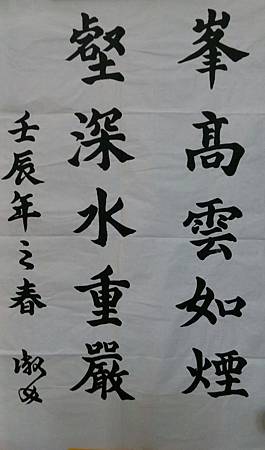 峯髙雲如煙
壑深水重嚴
壬辰年之春 淑